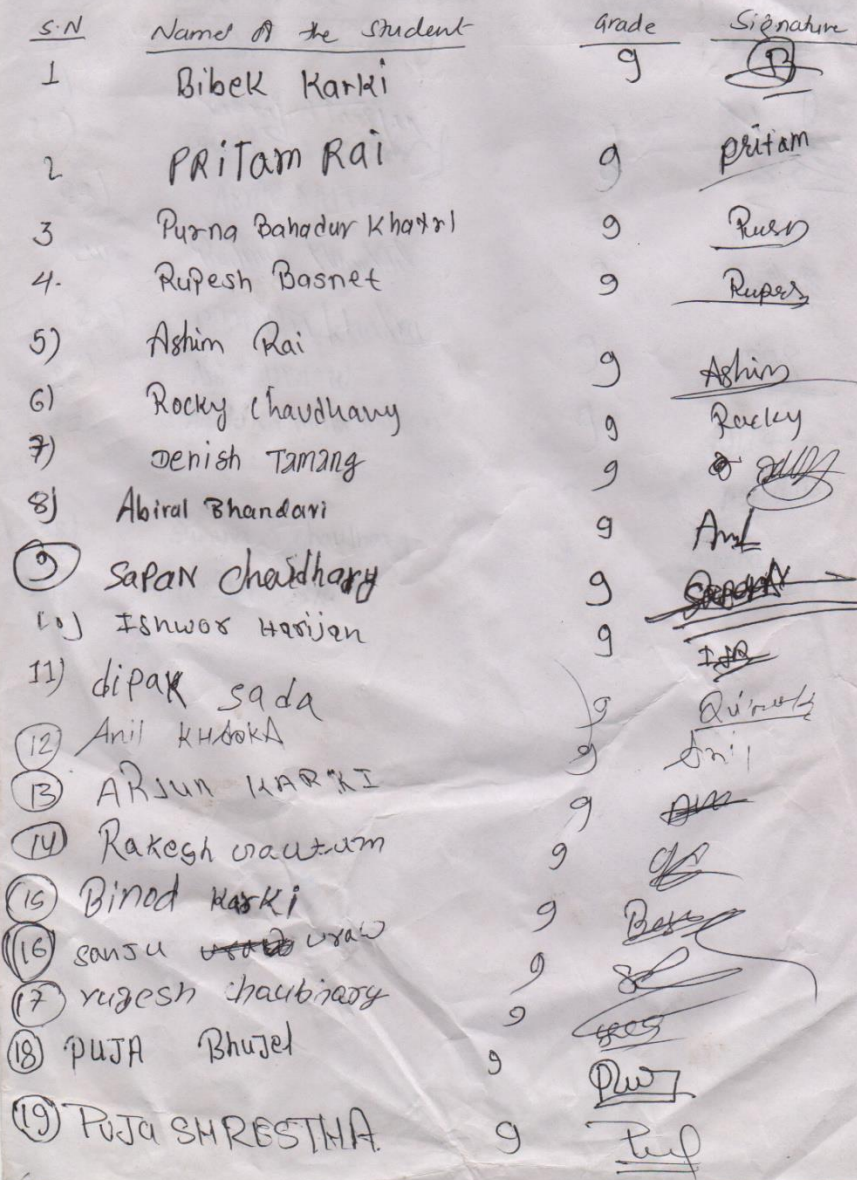 S.N Names of the Student Grade Signature
1 Bibek Karki 9 B
2 PRiTam Rai 9 pritam
3 Purna Bahadur Khatri 9
4. Rupesh Basnet 9
5) Ashim Rai 9 Ashim
6) Rocky Chaudhary 9 Rocky
7) Denish Tamang 9
8) Abiral Bhandari 9
9 SaPaN Chaudhary 9
10) Ishwor Harijan 9
11) dipak sada 9
12 Anil 9 Anil
13 ARJun KARKI 9
14 Rakesh 9
15 Binod Karki 9
16 sanju uraw 9
17 9
18 PUJA Bhujel 9
19 PuJa SHRESTHA 9